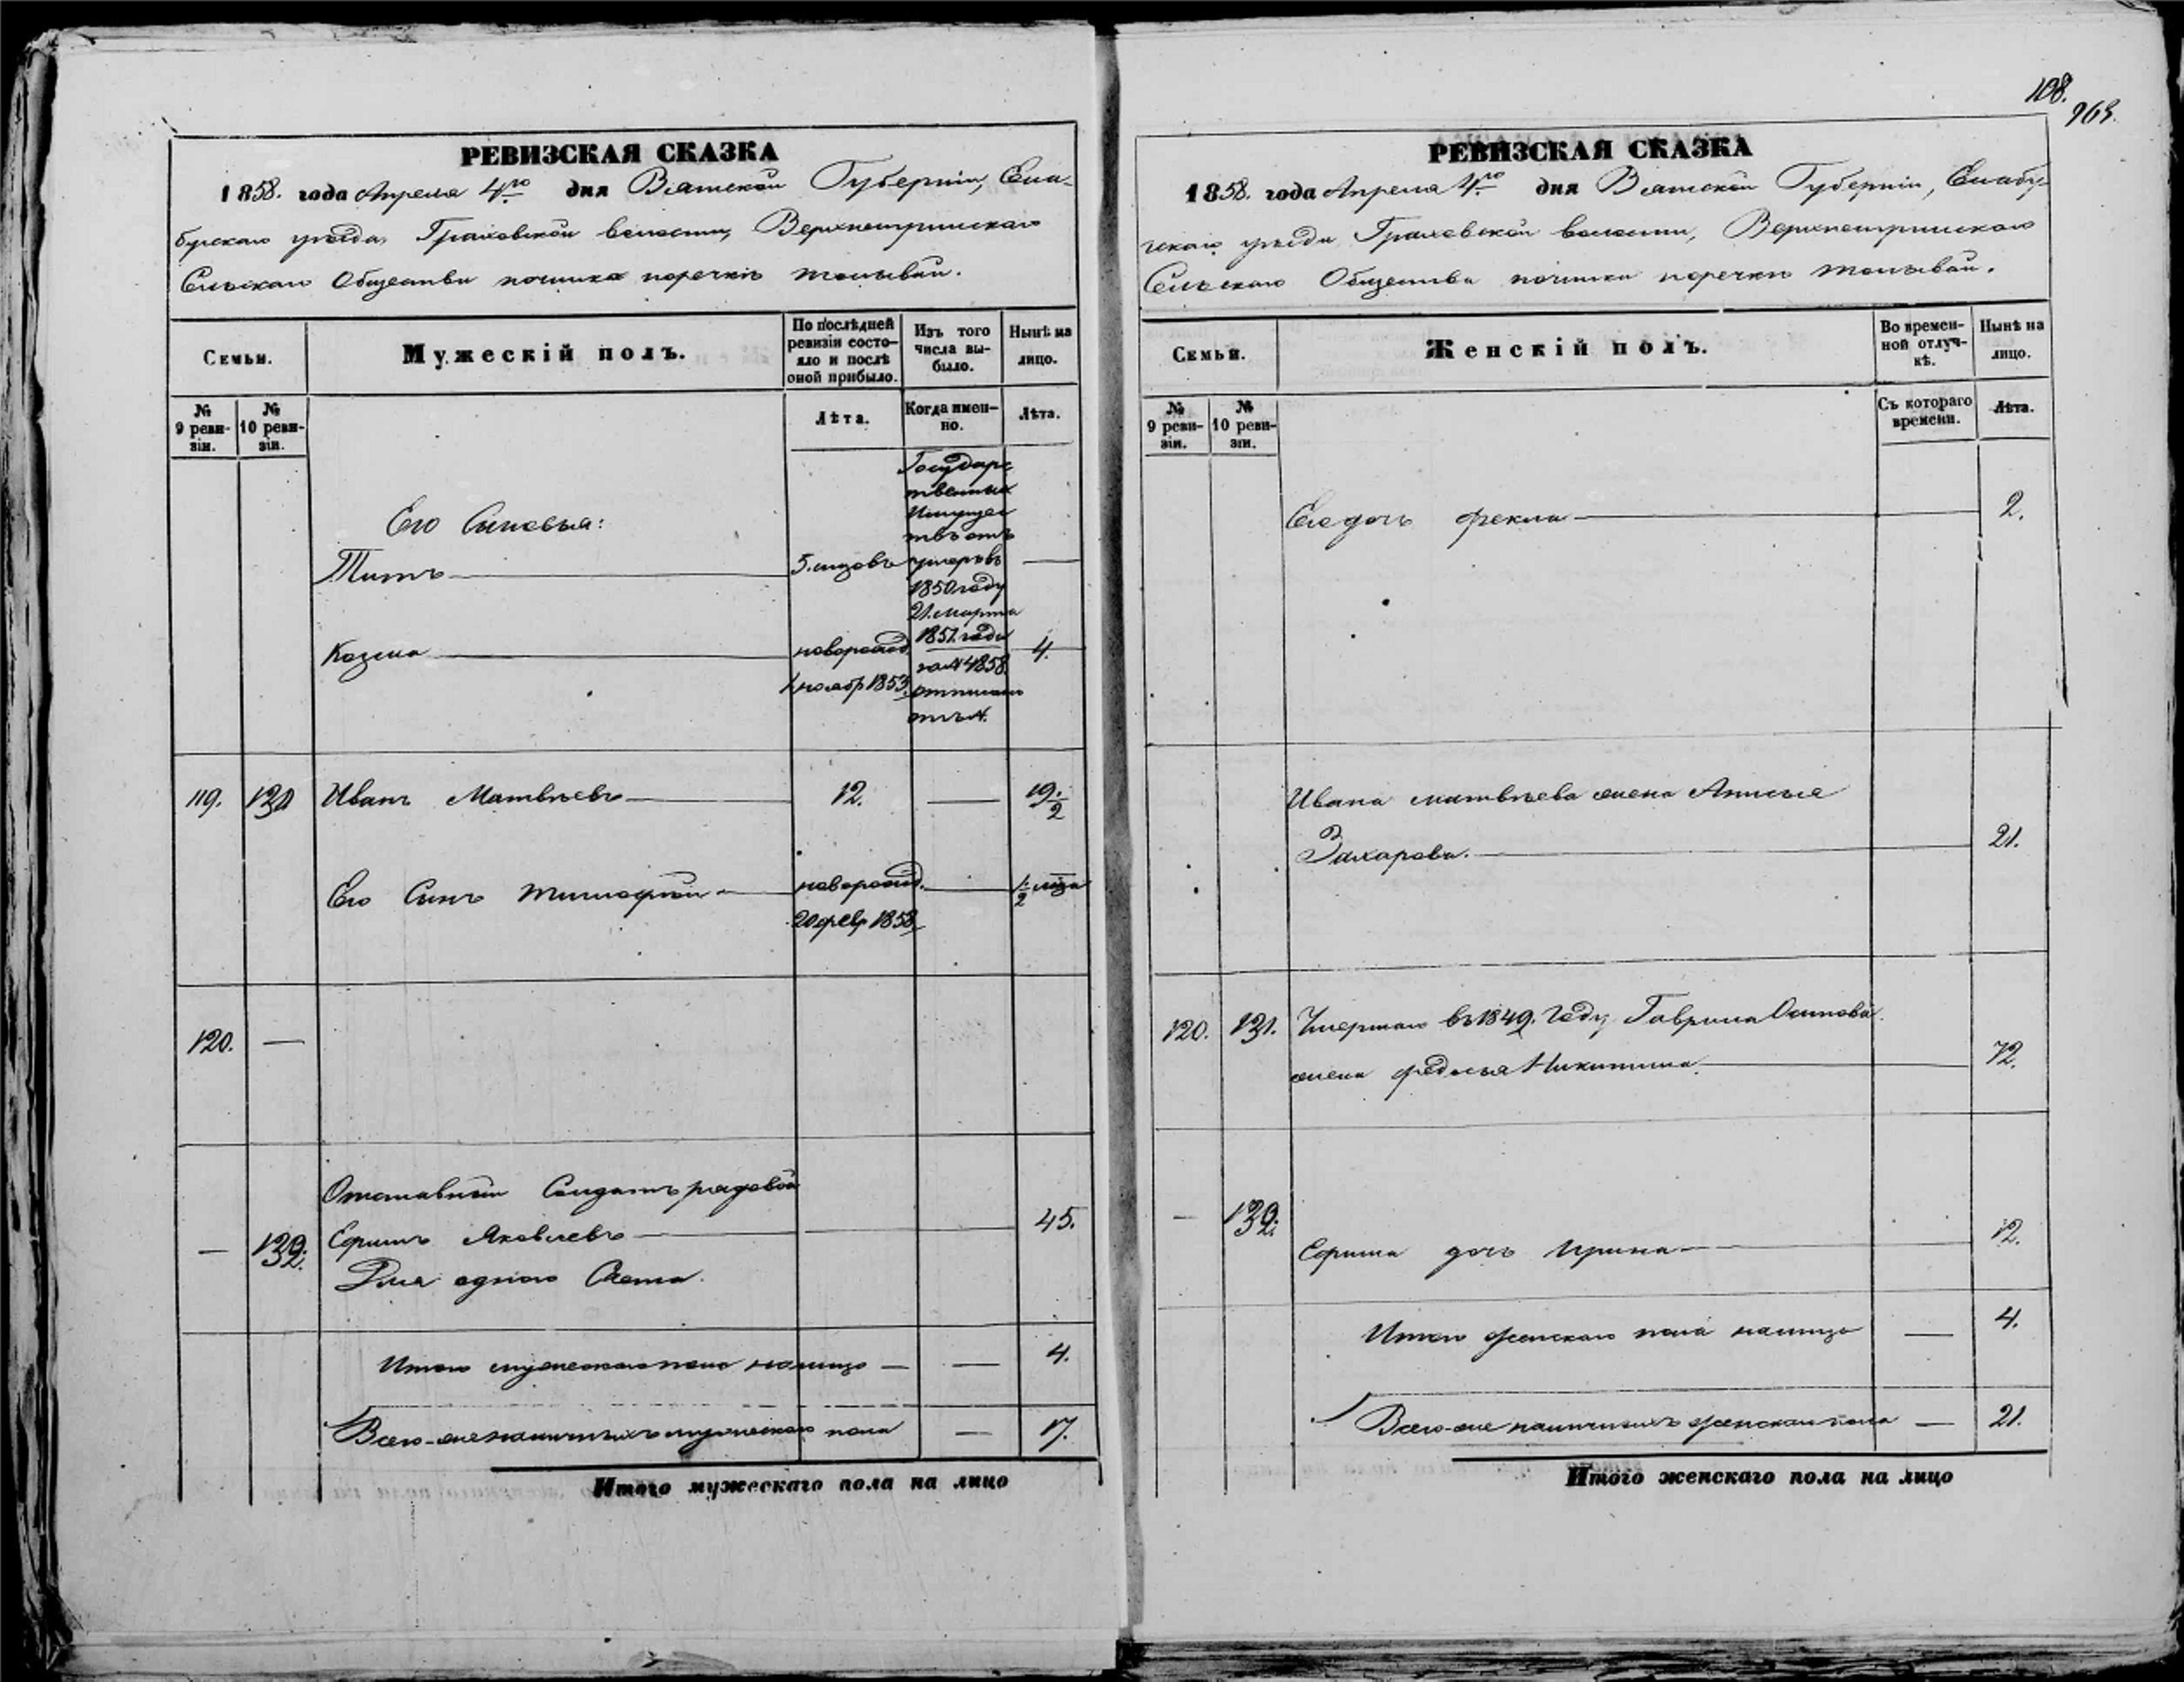 108.
963.
РЕВИЗСКАЯ СКАЗКА
1858. года Апреля 4го дня Вятской Губернiи, Ела-
бужскаго уѣзда, Граховской волости,
Сельскаго Общества починка поречкѣ
Семьи.
Мужескій полъ.
По послѣдней ревизіи состо-
яло и послѣ
оной прибыло.
Изъ того
числа вы-
было.
Нынѣ на
лицо.
№
9 реви-
зіи.
№
10 реви-
зіи.
Лѣта.
Когда имен-
но.
Лѣта.
Государс
твенных
Имущес
твъ отъ
Его Сыновья:
Титъ
5. мцовъ
умеръ въ
1850 году
21. марта
1851. года
Козма
новорожд.
1 ноябр 1853.
за № 4858.
4.
119.
130
Иванъ Матвѣевъ
12.
19 1/2
Его Сынъ Тимофей
новорожд.
20 февр 1858
1/2 мца
120.
Отставный Солдатъ рядовой
132.
Ефимъ Яковлевъ
45.
Для одного Счета.
Итого мужескаго пола налицо
4.
Всего-же наличныхъ мужескаго пола
17.
Итого мужескаго пола на лицо
РЕВИЗСКАЯ СКАЗКА
1858. года Апреля 4го дня Вятской Губернiи, Елабу-
жскаго уѣзда Граховской волости,
Сельскаго Общества починка поречкѣ
Семьи.
Женскій полъ.
Во времен-
ной отлуч-
кѣ.
Нынѣ на
лицо.
№
9 реви-
зіи.
№
10 реви-
зіи.
Съ котораго
времени.
Лѣта.
Его дочь Фекла
2.
Ивана Матвѣева жена Анисья
Захарова.
21.
120.
131.
Умершаго въ 1849. году Гаврила Осипова
жена Федосья Никитина
72.
132.
Ефима дочь Ирина
12.
Итого женскаго пола налицо
4.
Всего-же наличныхъ женскаго пола
21.
Итого женскаго пола на лицо